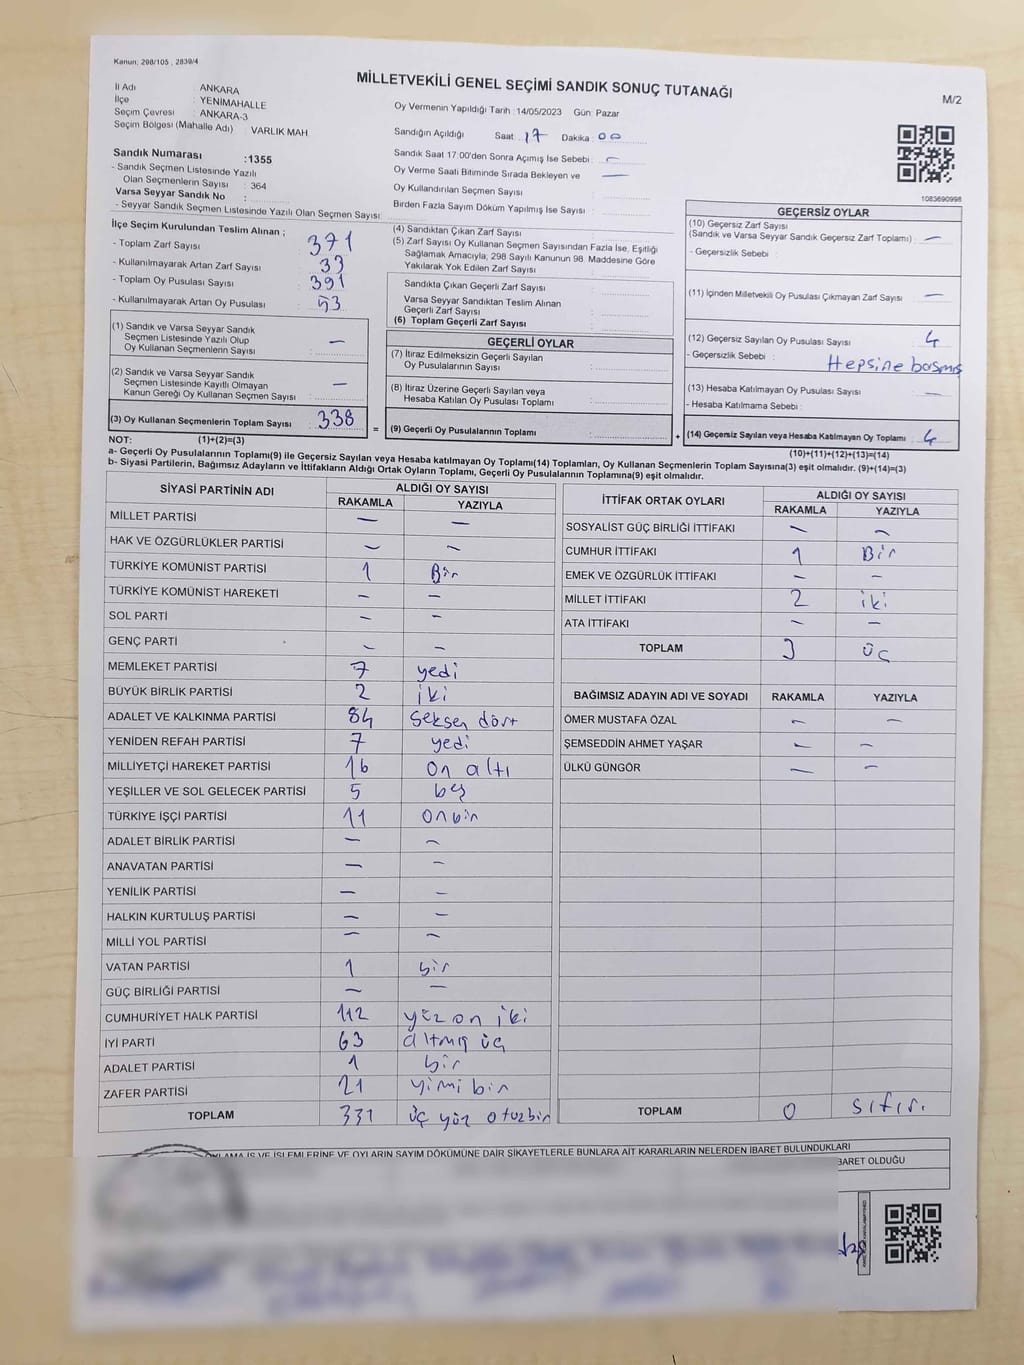 Kanun; 298/105 , 2839/4
MİLLETVEKİLİ GENEL SEÇİMİ SANDIK SONUÇ TUTANAĞI
M/2
İl Adı : ANKARA
İlçe : YENİMAHALLE
Seçim Çevresi : ANKARA-3
Seçim Bölgesi (Mahalle Adı) : VARLIK MAH.
Oy Vermenin Yapıldığı Tarih :14/05/2023 Gün: Pazar
Sandığın Açıldığı Saat : 17 Dakika : 00
Sandık Saat 17:00'den Sonra Açımış İse Sebebi : —
Oy Verme Saati Bitiminde Sırada Bekleyen ve —
Oy Kullandırılan Seçmen Sayısı :
Birden Fazla Sayım Döküm Yapılmış İse Sayısı :
Sandık Numarası :1355
- Sandık Seçmen Listesinde Yazılı
Olan Seçmenlerin Sayısı : 364
Varsa Seyyar Sandık No :
- Seyyar Sandık Seçmen Listesinde Yazılı Olan Seçmen Sayısı:
1083690998
İlçe Seçim Kurulundan Teslim Alınan ;
- Toplam Zarf Sayısı : 371
- Kullanılmayarak Artan Zarf Sayısı : 33
- Toplam Oy Pusulası Sayısı : 391
- Kullanılmayarak Artan Oy Pusulası : 53
(1) Sandık ve Varsa Seyyar Sandık
Seçmen Listesinde Yazılı Olup
Oy Kullanan Seçmenlerin Sayısı : —
(2) Sandık ve Varsa Seyyar Sandık
Seçmen Listesinde Kayıtlı Olmayan
Kanun Gereği Oy Kullanan Seçmen Sayısı : —
(3) Oy Kullanan Seçmenlerin Toplam Sayısı : 338
(4) Sandıktan Çıkan Zarf Sayısı :
(5) Zarf Sayısı Oy Kullanan Seçmen Sayısından Fazla İse, Eşitliği
Sağlamak Amacıyla; 298 Sayılı Kanunun 98. Maddesine Göre
Yakılarak Yok Edilen Zarf Sayısı :
Sandıkta Çıkan Geçerli Zarf Sayısı :
Varsa Seyyar Sandıktan Teslim Alınan
Geçerli Zarf Sayısı :
(6) Toplam Geçerli Zarf Sayısı :
GEÇERLİ OYLAR
(7) İtiraz Edilmeksizin Geçerli Sayılan
Oy Pusulalarının Sayısı :
(8) İtiraz Üzerine Geçerli Sayılan veya
Hesaba Katılan Oy Pusulası Toplamı :
= (9) Geçerli Oy Pusulalarının Toplamı :
GEÇERSİZ OYLAR
(10) Geçersiz Zarf Sayısı
(Sandık ve Varsa Seyyar Sandık Geçersiz Zarf Toplamı) : —
- Geçersizlik Sebebi :
(11) İçinden Milletvekili Oy Pusulası Çıkmayan Zarf Sayısı : —
(12) Geçersiz Sayılan Oy Pusulası Sayısı : 4
- Geçersizlik Sebebi : Hepsine basmış
(13) Hesaba Katılmayan Oy Pusulası Sayısı : —
- Hesaba Katılmama Sebebi :
+ (14) Geçersiz Sayılan veya Hesaba Katılmayan Oy Toplamı : 4
NOT: (1)+(2)=(3)
(10)+(11)+(12)+(13)=(14)
a- Geçerli Oy Pusulalarının Toplamı(9) ile Geçersiz Sayılan veya Hesaba katılmayan Oy Toplamı(14) Toplamları, Oy Kullanan Seçmenlerin Toplam Sayısına(3) eşit olmalıdır. (9)+(14)=(3)
b- Siyasi Partilerin, Bağımsız Adayların ve İttifakların Aldığı Ortak Oyların Toplamı, Geçerli Oy Pusulalarının Toplamına(9) eşit olmalıdır.
SİYASİ PARTİNİN ADI ALDIĞI OY SAYISI
RAKAMLA YAZIYLA
MİLLET PARTİSİ — —
HAK VE ÖZGÜRLÜKLER PARTİSİ — —
TÜRKİYE KOMÜNİST PARTİSİ 1 Bir
TÜRKİYE KOMÜNİST HAREKETİ — —
SOL PARTİ — —
GENÇ PARTİ — —
MEMLEKET PARTİSİ 7 yedi
BÜYÜK BİRLİK PARTİSİ 2 iki
ADALET VE KALKINMA PARTİSİ 84 Seksen dört
YENİDEN REFAH PARTİSİ 7 yedi
MİLLİYETÇİ HAREKET PARTİSİ 16 on altı
YEŞİLLER VE SOL GELECEK PARTİSİ 5 beş
TÜRKİYE İŞÇİ PARTİSİ 11 onbir
ADALET BİRLİK PARTİSİ — —
ANAVATAN PARTİSİ — —
YENİLİK PARTİSİ — —
HALKIN KURTULUŞ PARTİSİ — —
MİLLİ YOL PARTİSİ — —
VATAN PARTİSİ 1 bir
GÜÇ BİRLİĞİ PARTİSİ — —
CUMHURİYET HALK PARTİSİ 112 yüz on iki
İYİ PARTİ 63 altmış üç
ADALET PARTİSİ 1 bir
ZAFER PARTİSİ 21 yimi bir
TOPLAM 331 üç yüz otuzbir
İTTİFAK ORTAK OYLARI ALDIĞI OY SAYISI
RAKAMLA YAZIYLA
SOSYALİST GÜÇ BİRLİĞİ İTTİFAKI — —
CUMHUR İTTİFAKI 1 Bir
EMEK VE ÖZGÜRLÜK İTTİFAKI — —
MİLLET İTTİFAKI 2 iki
ATA İTTİFAKI — —
TOPLAM 3 üç
BAĞIMSIZ ADAYIN ADI VE SOYADI RAKAMLA YAZIYLA
ÖMER MUSTAFA ÖZAL — —
ŞEMSEDDİN AHMET YAŞAR — —
ÜLKÜ GÜNGÖR — —
TOPLAM 0 sıfır.
İŞ VE İŞLEMLERİNE VE OYLARIN SAYIM DÖKÜMÜNE DAİR ŞİKAYETLERLE BUNLARA AİT KARARLARIN NELERDEN İBARET BULUNDUKLARI
BARET OLDUĞU